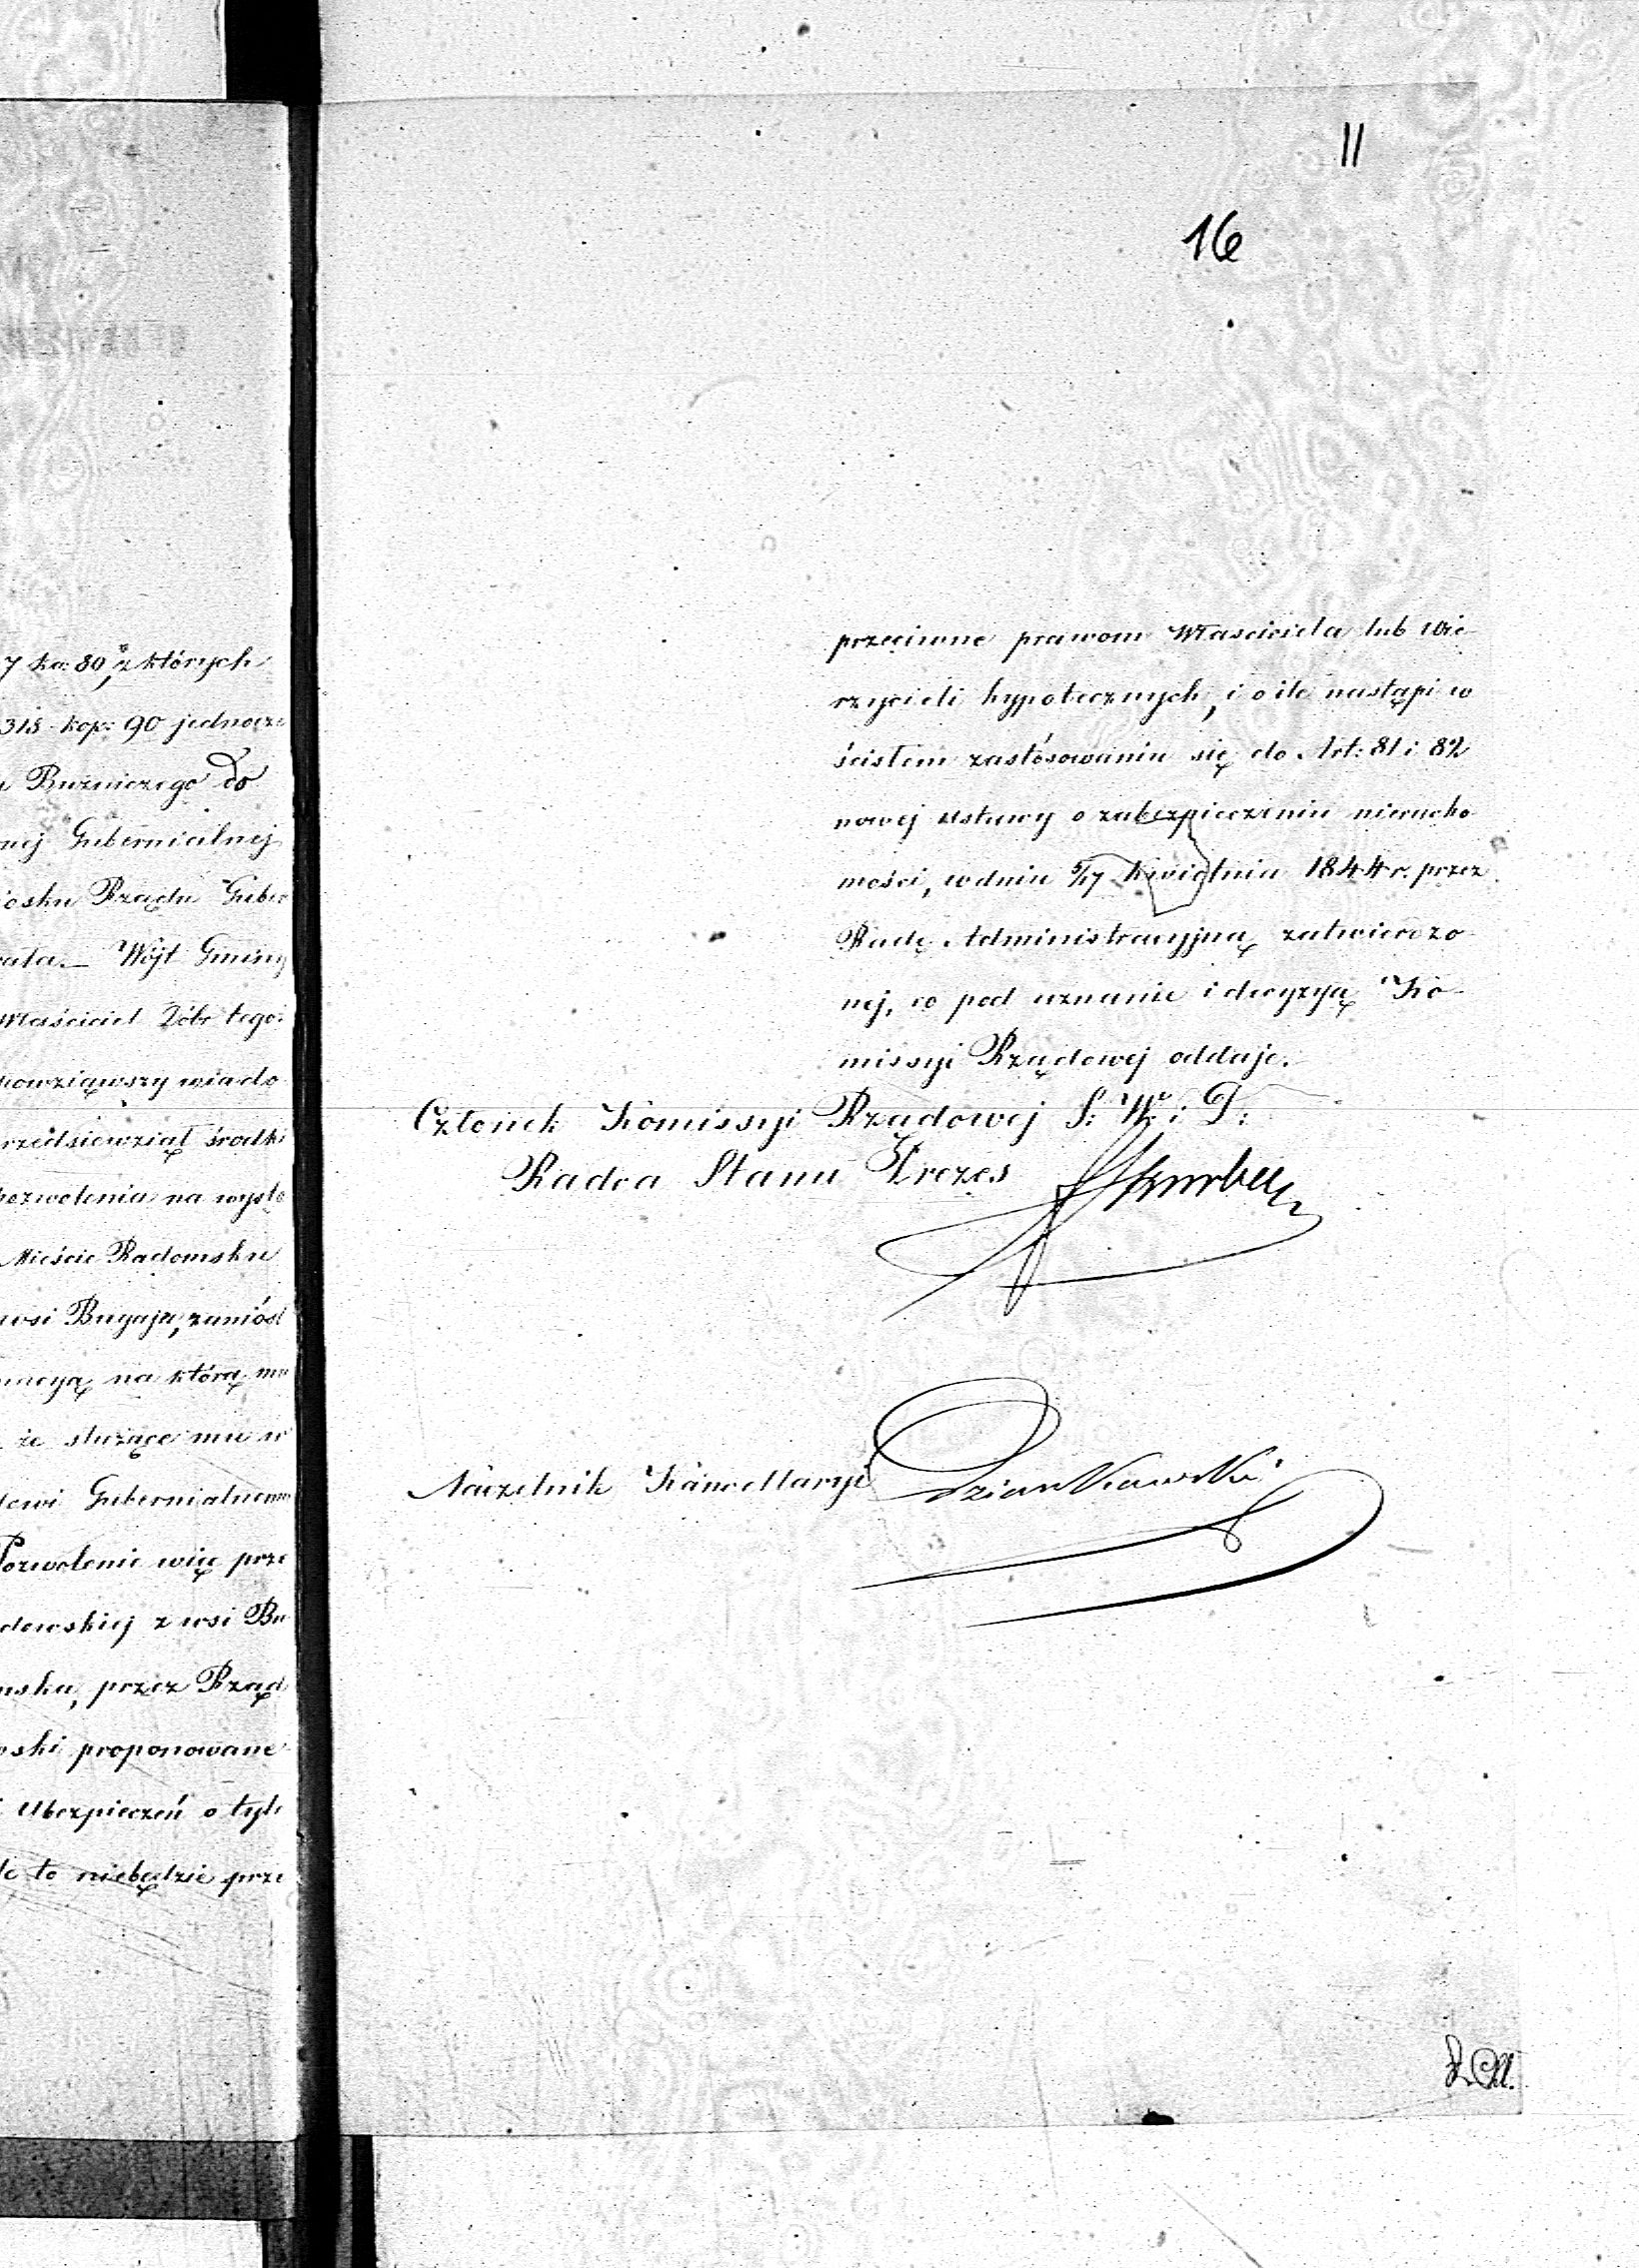 7 ko: 80, z których
318 kop: 90 jednocze
Bużniczego do
nej Gubernialnej
iosku Rządu Guber
Wójt Gminy
Właściciel Dóbr tego
powziąwszy wiado
rzedsięwziął środki
pozwolenia na wysta
Mieście Radomsku
wsi Bugaja, zaniósł
macyą na którą
że służące mu w
Gubernialnemu
Pozwolenie więc prze
dowskiej z wsi Bu
mska, przez Rząd
oski proponowane
Ubezpieczeń o tyle
le to niebędzie prze
11
16
przeciwne prawom Właściciela lub wie-
rzycieli hypotecznych, i o ile nastąpi w
ścisłem zastósowaniu się do Art: 81 i 82
nowej ustawy o zabezpieczeniu nierucho-
mości, w dniu 5/17 Kwietnia 1844 r. przez
Radę Administracyjną zatwierdzo-
nej, co pod uznanie i decyzyą Ko-
missyi Rządowej oddaje.
Członek Komissyi Rządowej S: W: i D:
Radca Stanu Prezes
Naczelnik Kancellaryi